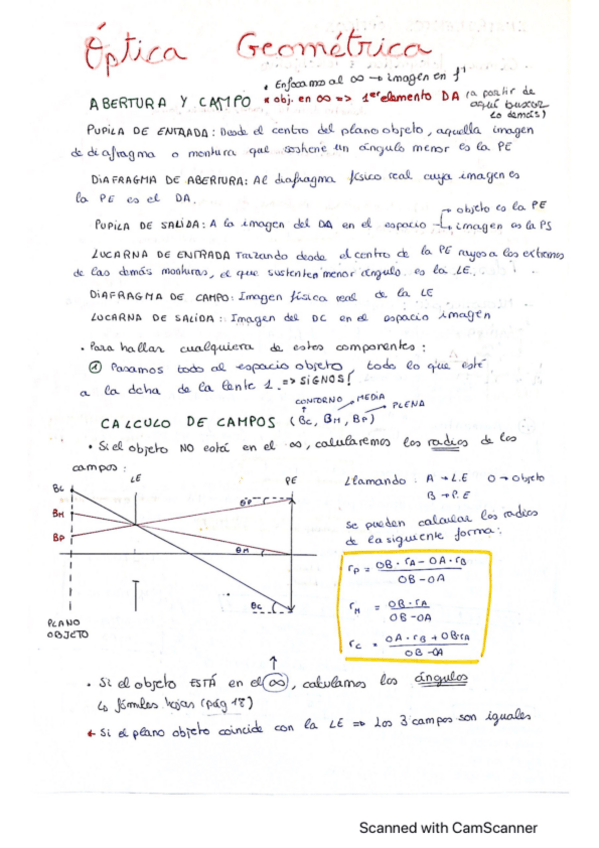 Óptica Geométrica
• Enfocamos al ∞ → imagen en f'
ABERTURA Y CAMPO * obj. en ∞ => 1er elemento DA (a partir de aquí buscar lo demás)
PUPILA DE ENTRADA: Desde el centro del plano objeto, aquella imagen
de diafragma o montura que sostiene un ángulo menor es la PE
DIAFRAGMA DE ABERTURA: Al diafragma físico real cuya imagen es
la PE es el DA.
→ objeto es la PE
PUPILA DE SALIDA: A la imagen del DA en el espacio → imagen es la PS
LUCARNA DE ENTRADA Trazando desde el centro de la PE rayos a los extremos
de las demás monturas, el que sustenten menor ángulo es la LE.
DIAFRAGMA DE CAMPO: Imagen física real de la LE
LUCARNA DE SALIDA: Imagen del DC en el espacio imagen
• Para hallar cualquiera de estos componentes:
① Pasamos todo al espacio objeto, todo lo que esté
a la dcha de la lente 1. => SIGNOS!
CONTORNO MEDIA PLENA
CALCULO DE CAMPOS (Bc, BM, BP)
• Si el objeto NO está en el ∞, calularemos los radios de los
campos:
LE PE
Bc
BM
BP
θP
θM
θc
PLANO
OBJETO
Llamando: A → L.E O → Objeto
B → P.E
Se pueden calcular los radios
de la siguiente forma:
rP = OB · rA - OA · rB / OB - OA
rM = OB · rA / OB - OA
rc = OA · rB + OB · rA / OB - OA
• Si el objeto ESTÁ en el ∞, calculamos los ángulos
↳ fómulas hojas (pág 17)
← Si el plano objeto coincide con la LE => los 3 campos son iguales
Scanned with CamScanner